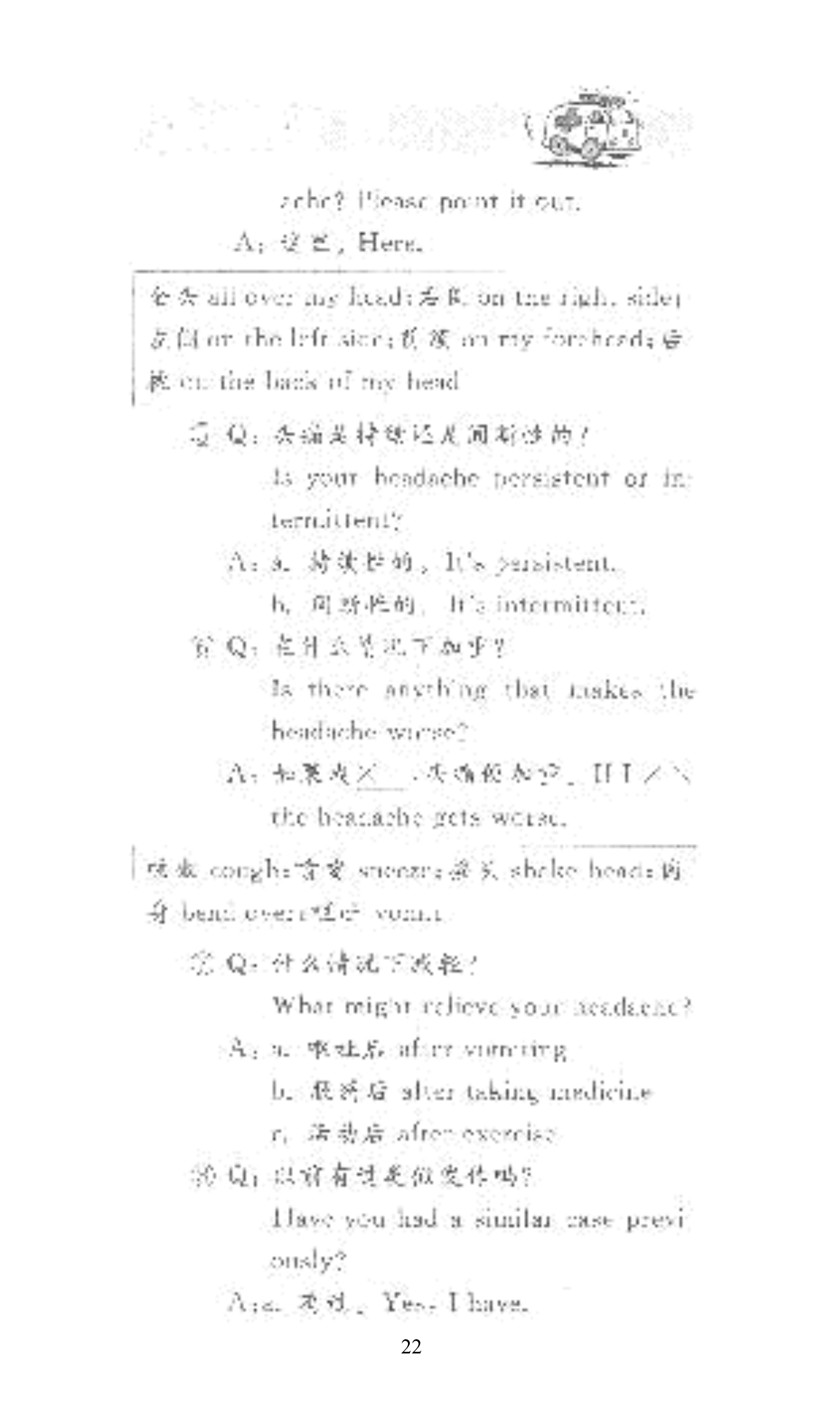 ache? Please point it out.
A: 这里, Here.
全头 all over my head;右侧 on the right side;
左侧 on the left side;前额 on my forehead;后
枕 on the back of my head
⑤ Q: 头痛是持续还是间断性的?
Is your headache persistent or in-
termittent?
A: a. 持续性的。It's persistent.
b. 间断性的。It's intermittent.
⑥ Q: 在什么情况下加重?
Is there anything that makes the
headache worse?
A: 如果我×__,头痛便加重。If I ××
the headache gets worse.
咳嗽 cough;喷嚏 sneeze;摇头 shake head;
身 bend over;呕吐 vomit
⑦ Q: 什么情况下减轻?
What might relieve your headache?
A: a. 呕吐后 after vomiting
b. 服药后 after taking medicine
c. 活动后 after exercise
⑧ Q: 以前有过类似发作吗?
Have you had a similar case previ-
ously?
A:a. 有过。Yes, I have.
22